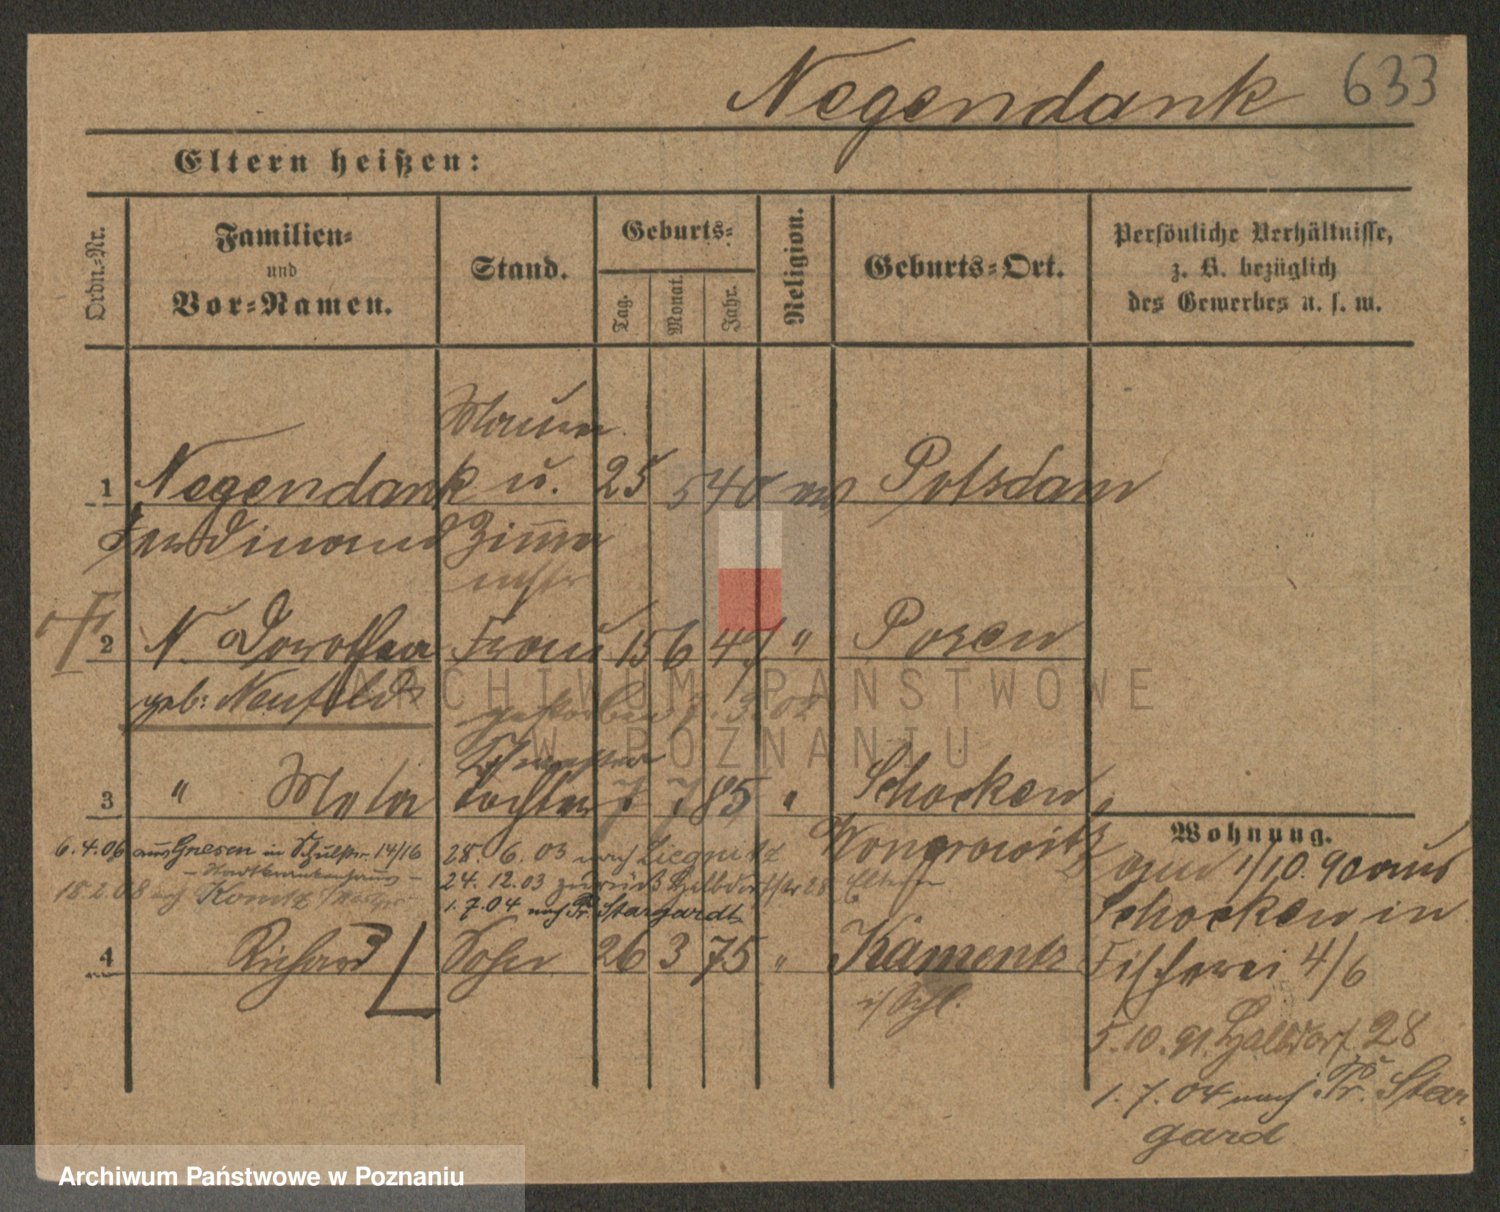 Negendank 633
Eltern heißen:
Ordn.-Nr.
Familien-
und
Vor-Namen.
Stand.
Geburts-
Tag.
Monat.
Jahr.
Religion.
Geburts-Ort.
Persönliche Verhältnisse,
z. B. bezüglich
des Gewerbes u. s. w.
Maurer
1 Negendank u. 25 5 40 ev Potsdam
Ferdinand Zimmer
mstr
2 N. Dorothea Frau 15 6 47 " Posen
geb: Neufeldt gestorben 3. 02
3 " Meta Tochter 7 7 85 " Schocken
Wongrowitz
6.4.06 aus Gnesen in Schulstr. 14/16
- Stadtkrankenhaus -
18.2.08 nach Konitz
28. 6. 03 nach Liegnitz
24. 12. 03 zurück Halbdorfstr 28 Eltern
1. 7. 04 nach Pr. Stargardt
4 Richard Sohn 26 3 75 " Kamentz
i/ Schl.
Wohnung.
am 1/10. 90 aus
Schocken in
Fischerei 4/6
5. 10. 91. Halbdorf 28
1. 7. 04 nach Pr. Star-
gard
ARCHIWUM PAŃSTWOWE
W POZNANIU
Archiwum Państwowe w Poznaniu